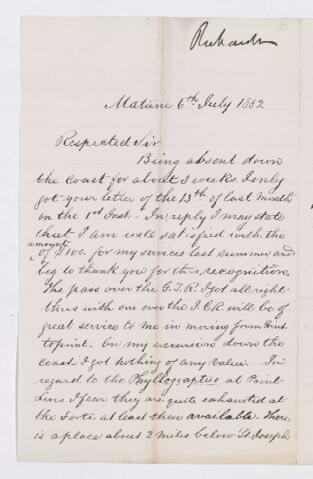 Richards
Matane 6th July 1882
Respected Sir
Being absent down
the coast for about 3 weeks I only
got your letter of the 13th of last month
on the 1st Inst - In reply I may state
that I am well satisfied with the
amount
of $100. for my services last summer and
beg to thank you for this recognition.
The pass over the G.T.R. I got all right
this with one over the I.C.R. will be of
great service to me in moving from Point
to point. On my excursion down the
coast I got nothing of any value. In
regard to the Phyllograpties at Point
Levis I fear they are quite exhausted at
the Forts, at least those available. There
is a place about 2 miles below St. Joseph